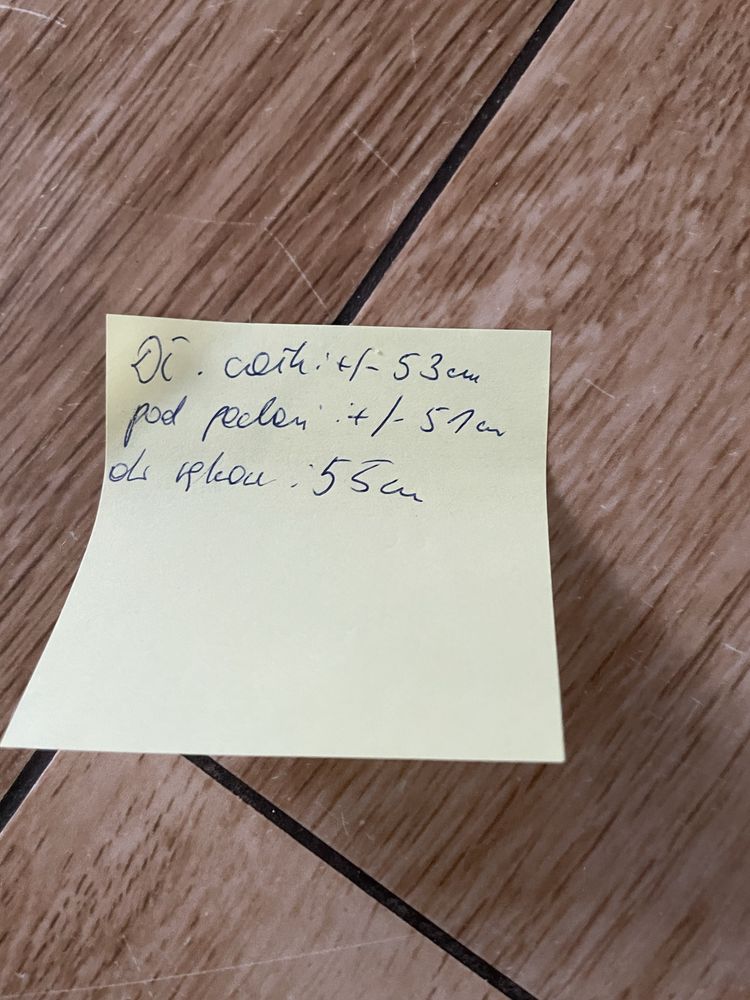 Dł. całk: +/- 53cm
pod pachami: +/- 51cm
dł rękaw: 55cm